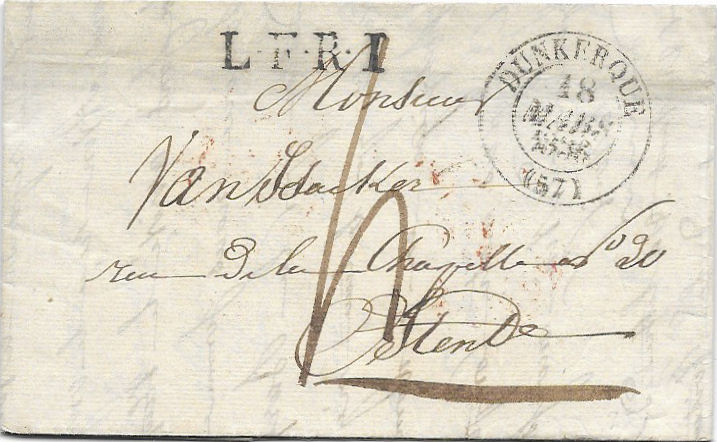 L.F.R.1
DUNKERQUE
18
MARS
(57)
Monsieur
rue de la Chapelle no 20
Ostende